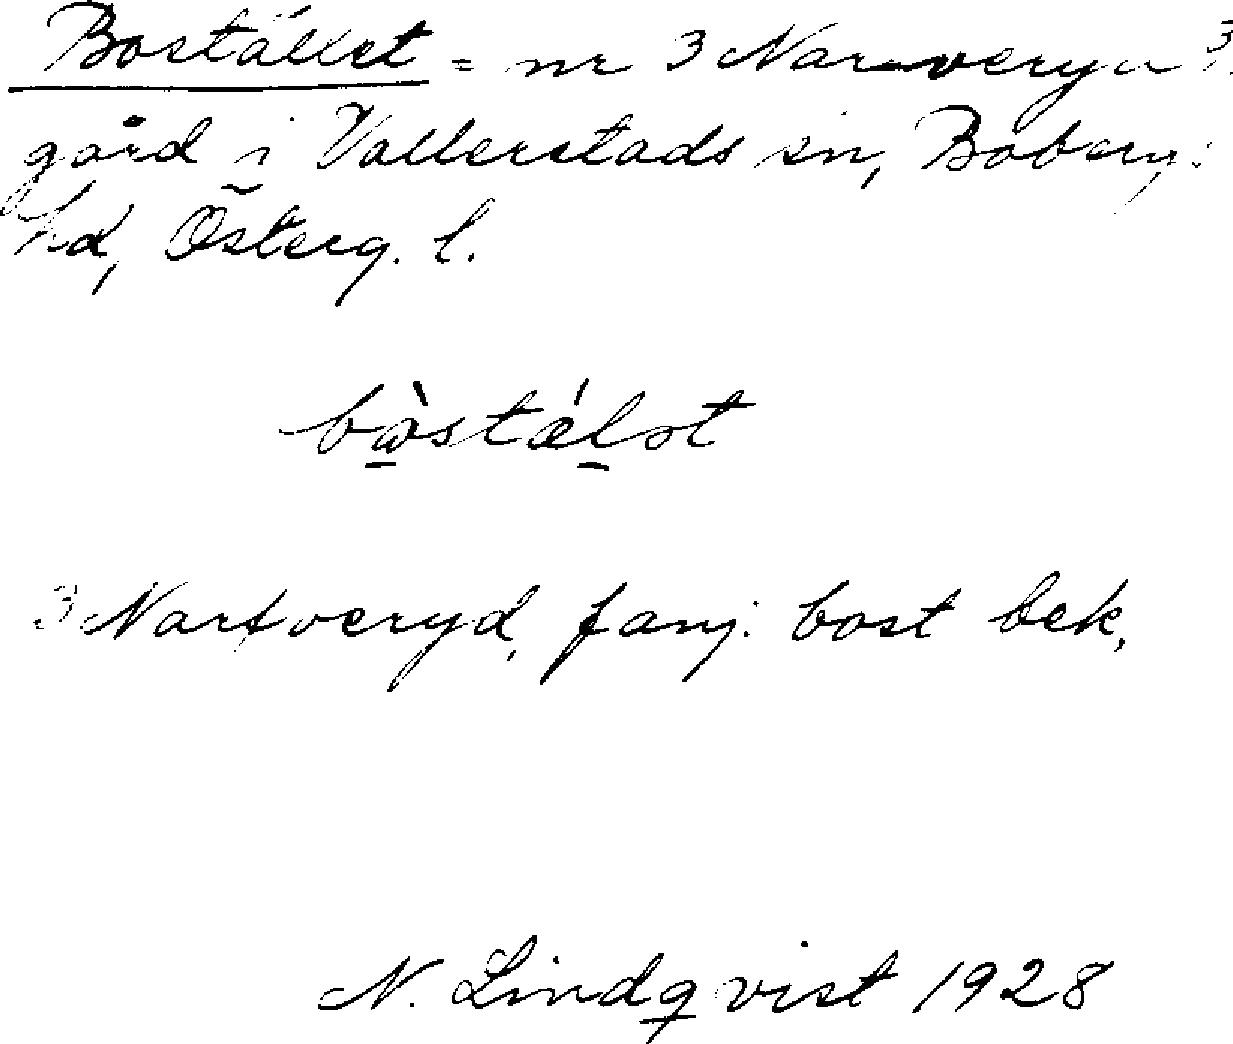 Bostället = nr 3 Narveryd 3
gård i Vallerstads sn, Bobergs
hd, Österg. l.
bὼstǽlət
3 Nartveryd, fanj. bost bek,
N. Lindqvist 1928